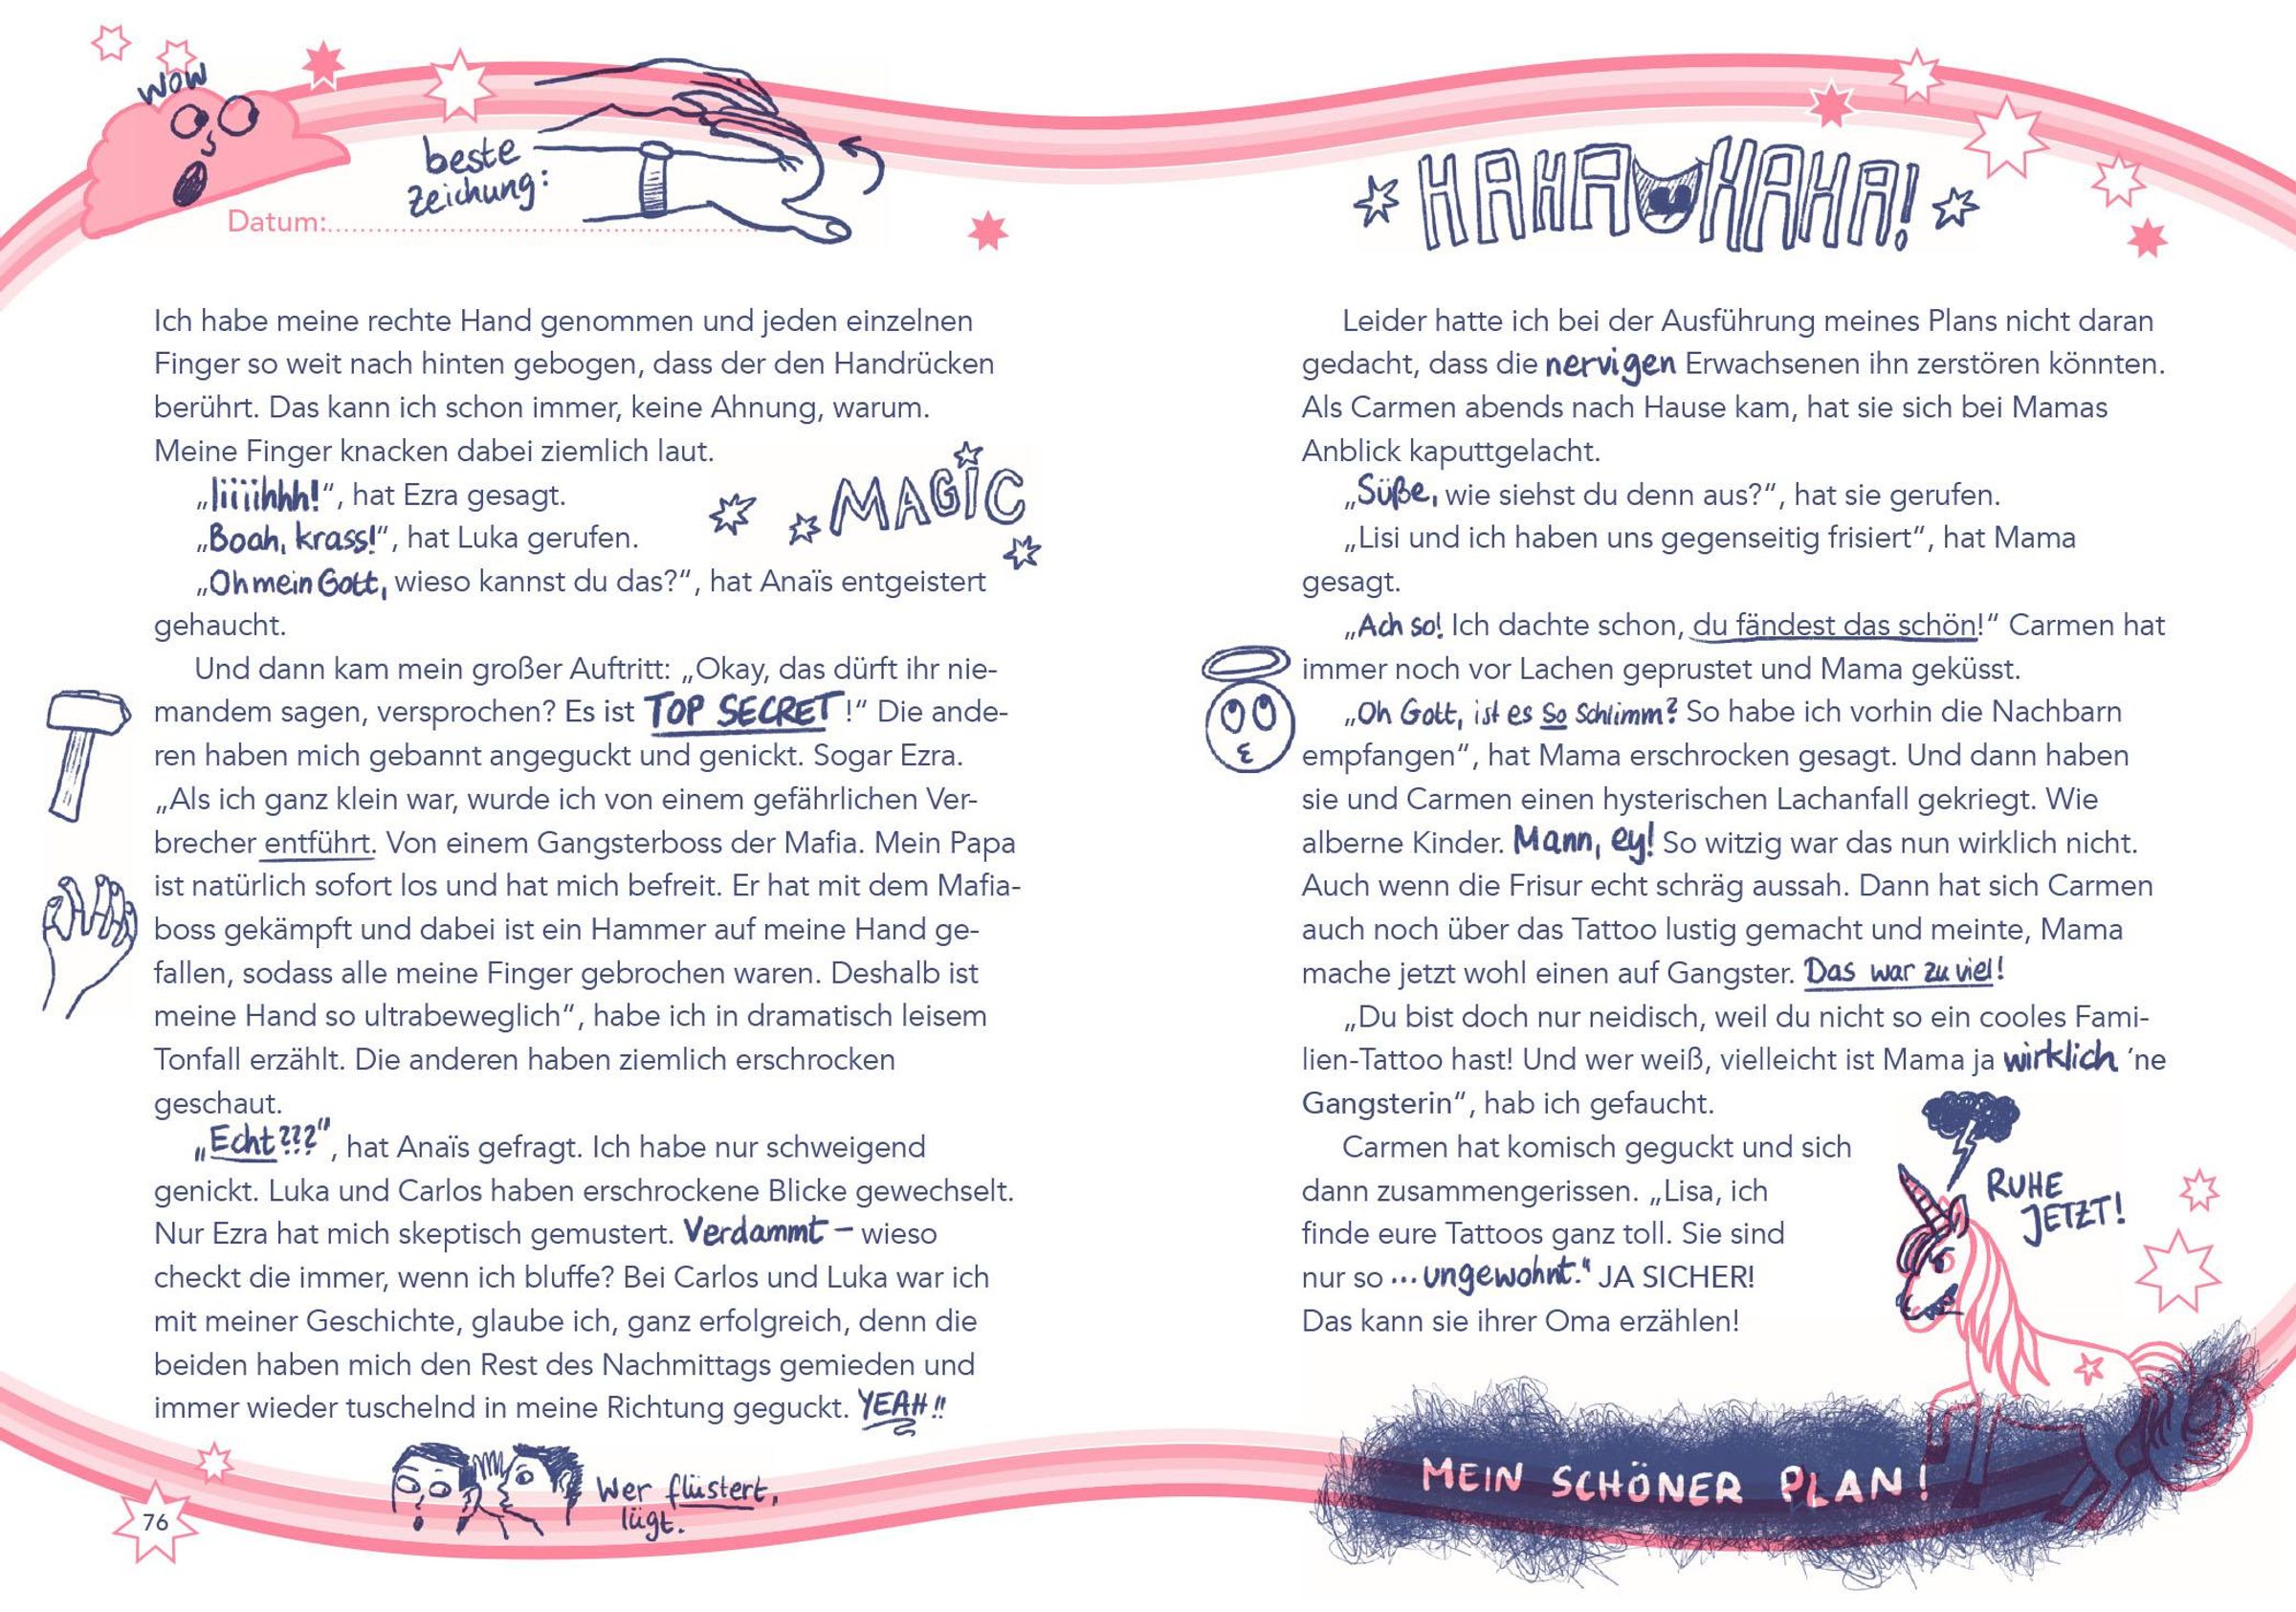 WOW
beste
zeichung:
Datum:
Ich habe meine rechte Hand genommen und jeden einzelnen
Finger so weit nach hinten gebogen, dass der den Handrücken
berührt. Das kann ich schon immer, keine Ahnung, warum.
Meine Finger knacken dabei ziemlich laut.
„Iiiiihhh!“, hat Ezra gesagt.
„Boah, krass!“, hat Luka gerufen.
MAGIC
„Oh mein Gott, wieso kannst du das?“, hat Anaïs entgeistert
gehaucht.
Und dann kam mein großer Auftritt: „Okay, das dürft ihr nie-
mandem sagen, versprochen? Es ist TOP SECRET!“ Die ande-
ren haben mich gebannt angeguckt und genickt. Sogar Ezra.
„Als ich ganz klein war, wurde ich von einem gefährlichen Ver-
brecher entführt. Von einem Gangsterboss der Mafia. Mein Papa
ist natürlich sofort los und hat mich befreit. Er hat mit dem Mafia-
boss gekämpft und dabei ist ein Hammer auf meine Hand ge-
fallen, sodass alle meine Finger gebrochen waren. Deshalb ist
meine Hand so ultrabeweglich“, habe ich in dramatisch leisem
Tonfall erzählt. Die anderen haben ziemlich erschrocken
geschaut.
„Echt???“, hat Anaïs gefragt. Ich habe nur schweigend
genickt. Luka und Carlos haben erschrockene Blicke gewechselt.
Nur Ezra hat mich skeptisch gemustert. Verdammt – wieso
checkt die immer, wenn ich bluffe? Bei Carlos und Luka war ich
mit meiner Geschichte, glaube ich, ganz erfolgreich, denn die
beiden haben mich den Rest des Nachmittags gemieden und
immer wieder tuschelnd in meine Richtung geguckt. YEAH!!
Wer flüstert,
lügt.
76
HAHAHAHA!
Leider hatte ich bei der Ausführung meines Plans nicht daran
gedacht, dass die nervigen Erwachsenen ihn zerstören könnten.
Als Carmen abends nach Hause kam, hat sie sich bei Mamas
Anblick kaputtgelacht.
„Süße, wie siehst du denn aus?“, hat sie gerufen.
„Lisi und ich haben uns gegenseitig frisiert“, hat Mama
gesagt.
„Ach so! Ich dachte schon, du fändest das schön!“ Carmen hat
immer noch vor Lachen geprustet und Mama geküsst.
„Oh Gott, ist es so schlimm? So habe ich vorhin die Nachbarn
empfangen“, hat Mama erschrocken gesagt. Und dann haben
sie und Carmen einen hysterischen Lachanfall gekriegt. Wie
alberne Kinder. Mann, ey! So witzig war das nun wirklich nicht.
Auch wenn die Frisur echt schräg aussah. Dann hat sich Carmen
auch noch über das Tattoo lustig gemacht und meinte, Mama
mache jetzt wohl einen auf Gangster. Das war zu viel!
„Du bist doch nur neidisch, weil du nicht so ein cooles Fami-
lien-Tattoo hast! Und wer weiß, vielleicht ist Mama ja wirklich ’ne
Gangsterin“, hab ich gefaucht.
Carmen hat komisch geguckt und sich
dann zusammengerissen. „Lisa, ich
finde eure Tattoos ganz toll. Sie sind
nur so ... ungewohnt.“ JA SICHER!
Das kann sie ihrer Oma erzählen!
RUHE
JETZT!
MEIN SCHÖNER PLAN!